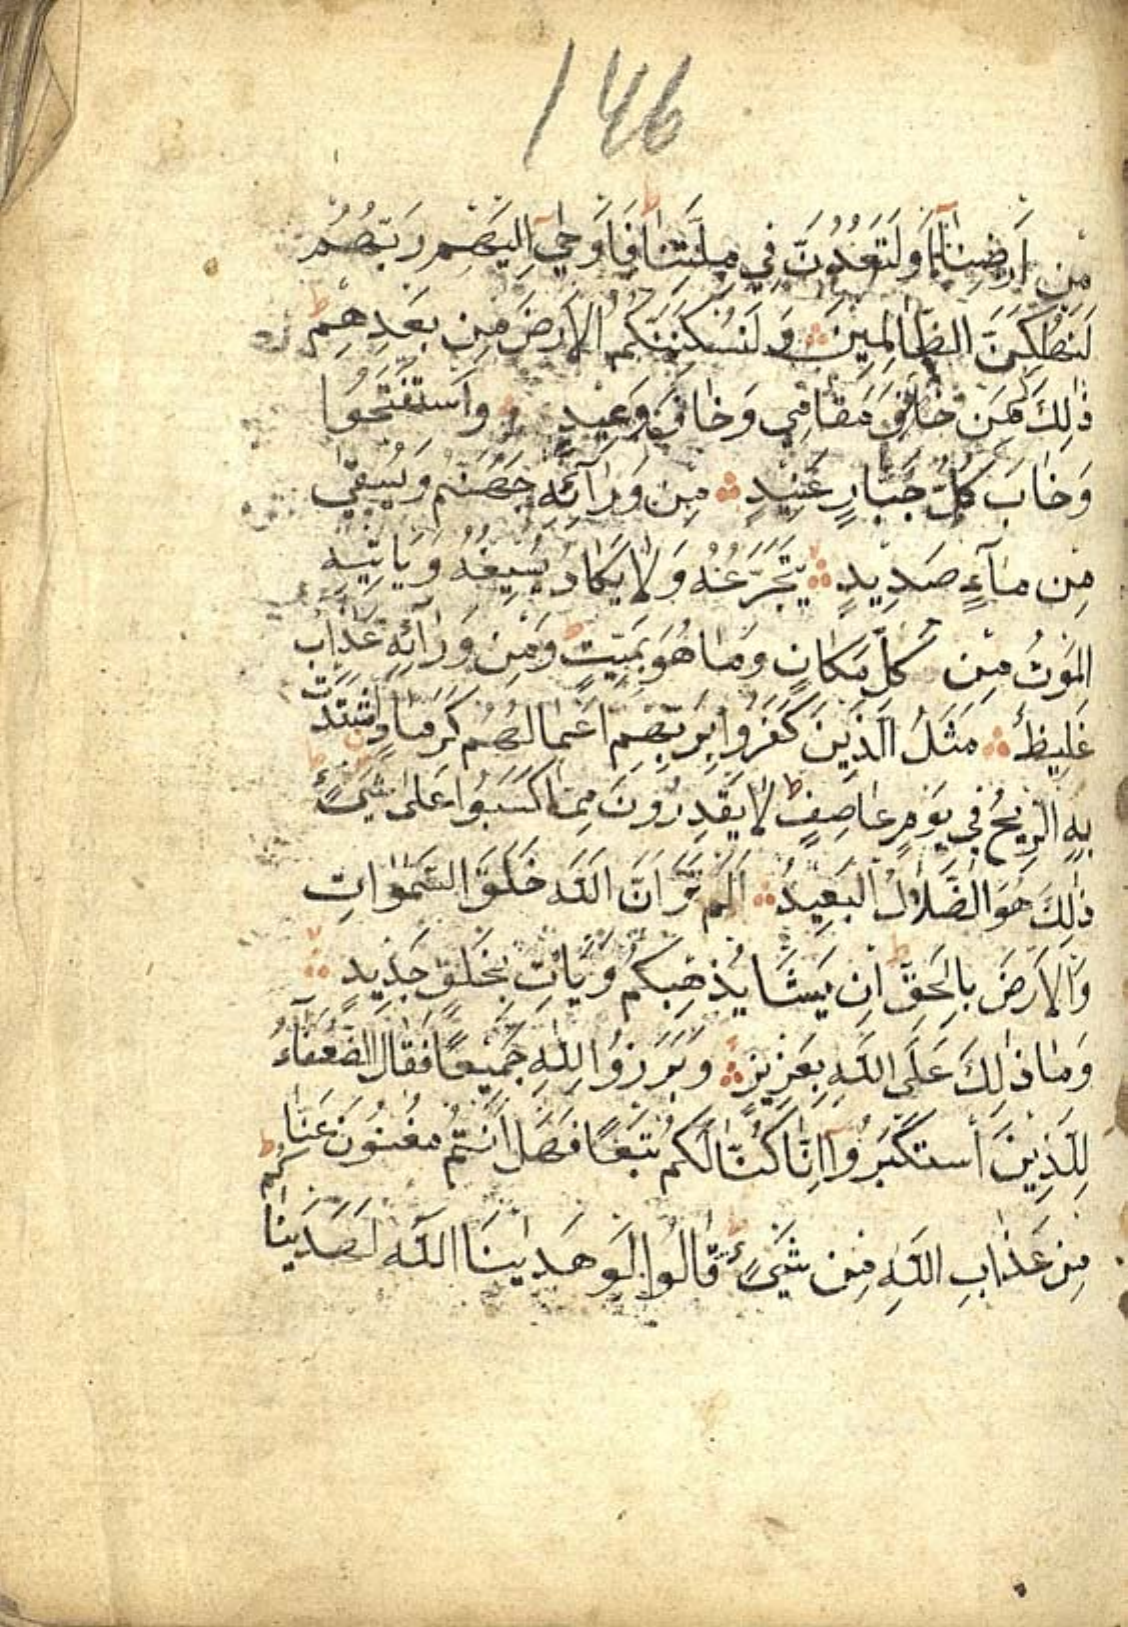 146
مِن اَرضِنَآ اَو لَتَعُودُنَّ فِي مِلَّتِنَا فَاَوحٰي اِلَيهِم رَبُّهُم
لَنُهلِكَنَّ الظَّالِمِينَ وَلَنُسكِنَنَّكُمُ الاَرضَ مِن بَعدِهِم
ذٰلِكَ لِمَن خَافَ مَقَامِي وَخَافَ وَعِيدِ وَاستَفتَحُوا
وَخَابَ كُلُّ جَبَّارٍ عَنِيدٍ مِن وَرَآئِهِ جَهَنَّمُ وَيُسقٰي
مِن مَآءٍ صَدِيدٍ يَتَجَرَّعُهُ وَلَا يَكَادُ يُسِيغُهُ وَيَاتِيهِ
المَوتُ مِن كُلِّ مَكَانٍ وَمَا هُوَ بِمَيِّتٍ وَمِن وَرَآئِهِ عَذَابٌ
غَلِيظٌ مَثَلُ الَّذِينَ كَفَرُوا بِرَبِّهِم اَعمَالُهُم كَرَمَادٍ اشتَدَّت
بِهِ الرِّيحُ فِي يَومٍ عَاصِفٍ لَا يَقدِرُونَ مِمَّا كَسَبُوا عَلٰى شَيءٍ
ذٰلِكَ هُوَ الضَّلَالُ البَعِيدُ اَلَم تَرَ اَنَّ اللّٰهَ خَلَقَ السَّمٰوَاتِ
وَالاَرضَ بِالحَقِّ اِن يَشَا يُذهِبكُم وَيَاتِ بِخَلقٍ جَدِيدٍ
وَمَا ذٰلِكَ عَلَى اللّٰهِ بِعَزِيزٍ وَبَرَزُوا لِلّٰهِ جَمِيعًا فَقَالَ الضُّعَفَآءُ
لِلَّذِينَ استَكبَرُوآ اِنَّا كُنَّا لَكُم تَبَعًا فَهَل اَنتُم مُغنُونَ عَنَّا
مِن عَذَابِ اللّٰهِ مِن شَيءٍ قَالُوا لَو هَدٰينَا اللّٰهُ لَهَدَينَاكُم